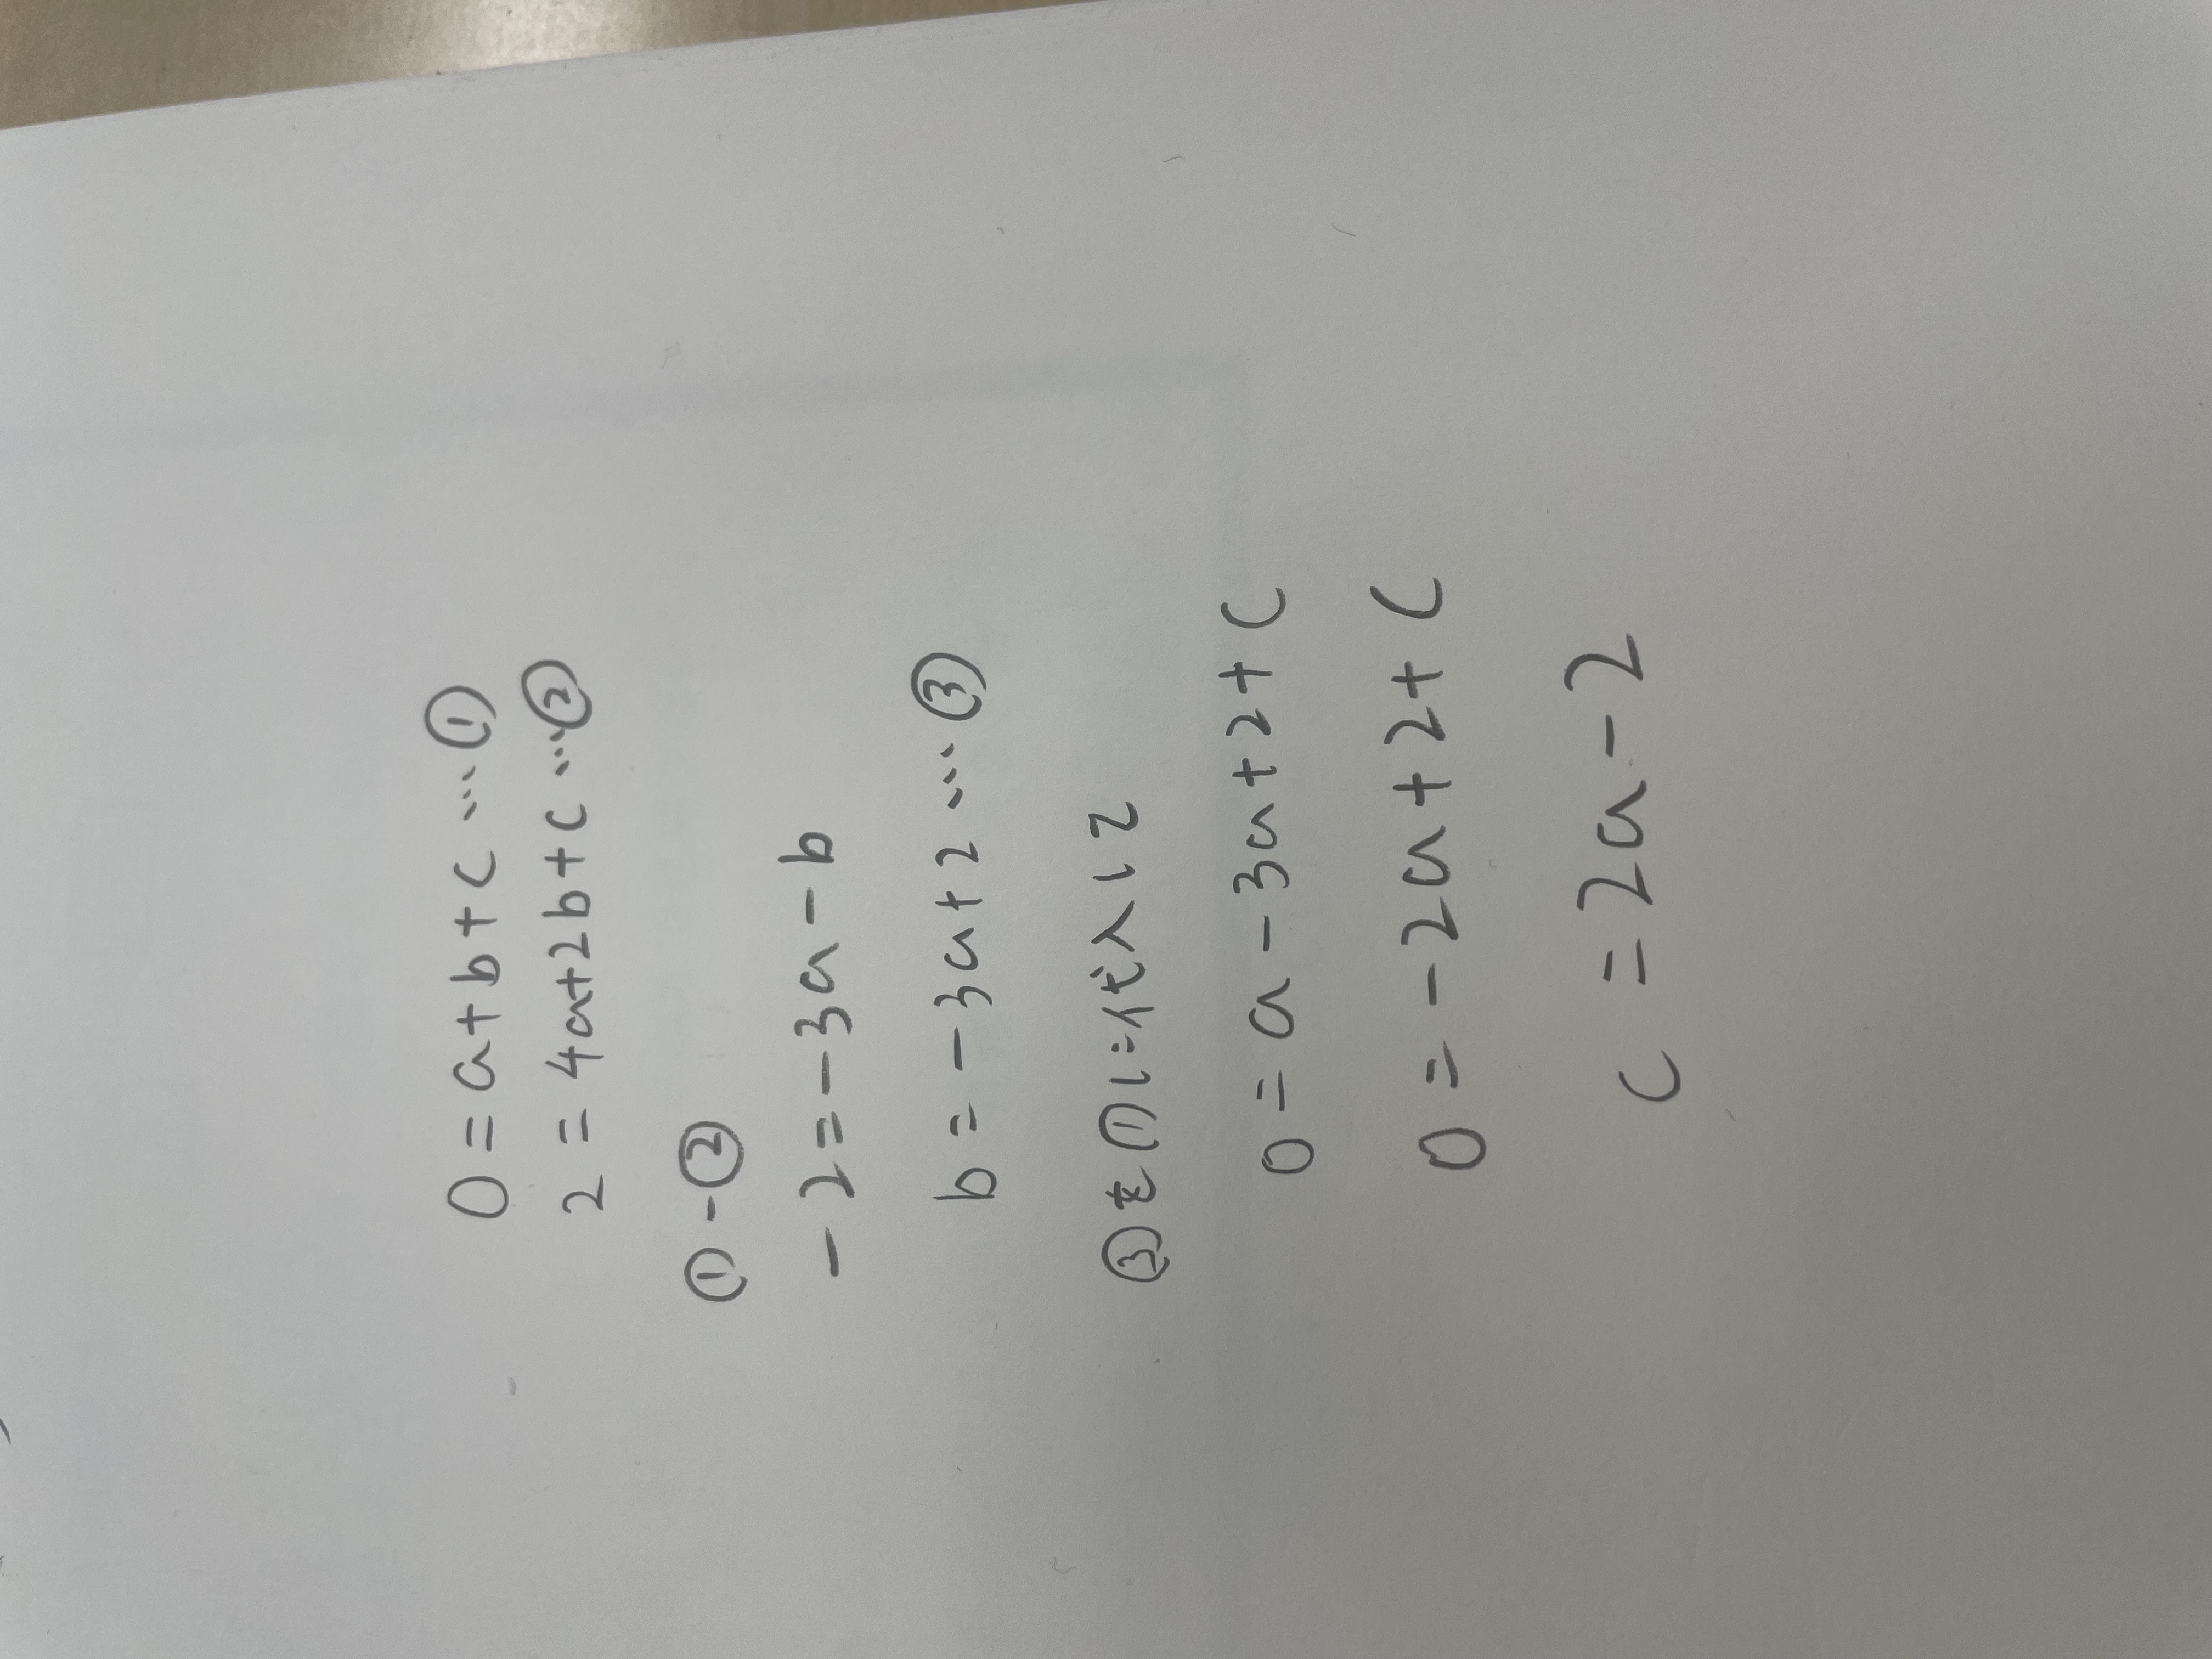 0=a+b+c…①
2=4a+2b+c…②
①-②
-2=-3a-b
b=-3a+2…③
③を①に代入して
0=a-3a+2+c
0=-2a+2+c
c=2a-2